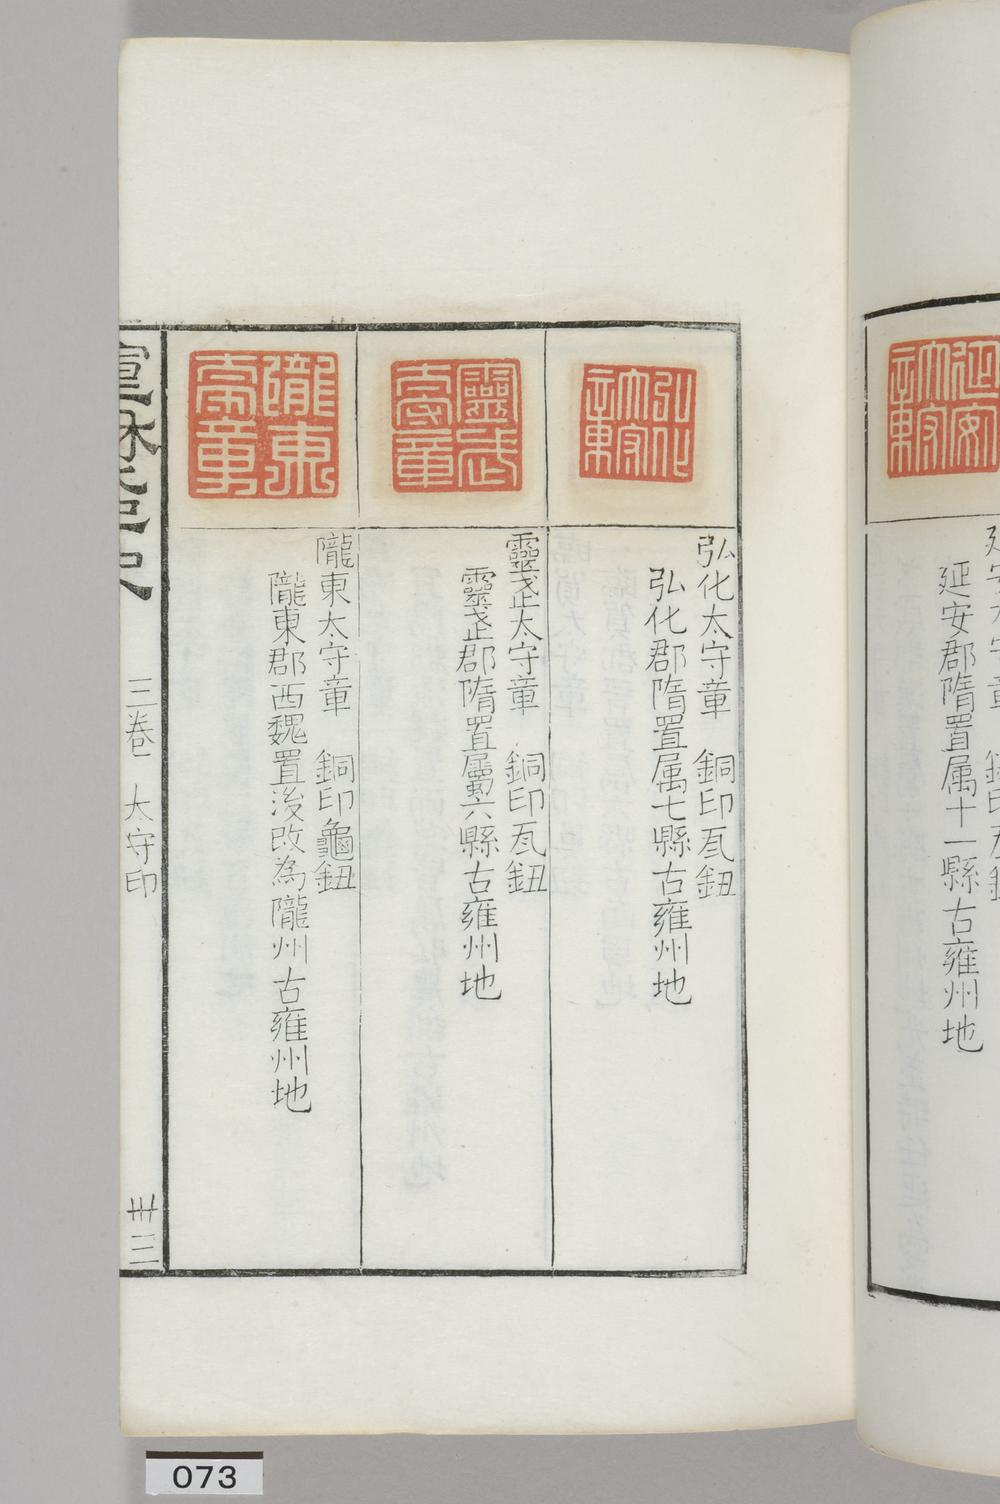 延安郡隋置属十一縣古雍州地
弘化太守章
弘化太守章　銅印瓦鈕
弘化郡隋置属七縣古雍州地
靈武太守章
靈武太守章　銅印瓦鈕
靈武郡隋置屬六縣古雍州地
隴東太守章
隴東太守章　銅印龜鈕
隴東郡西魏置後改為隴州古雍州地
三卷　太守印
卅三
073